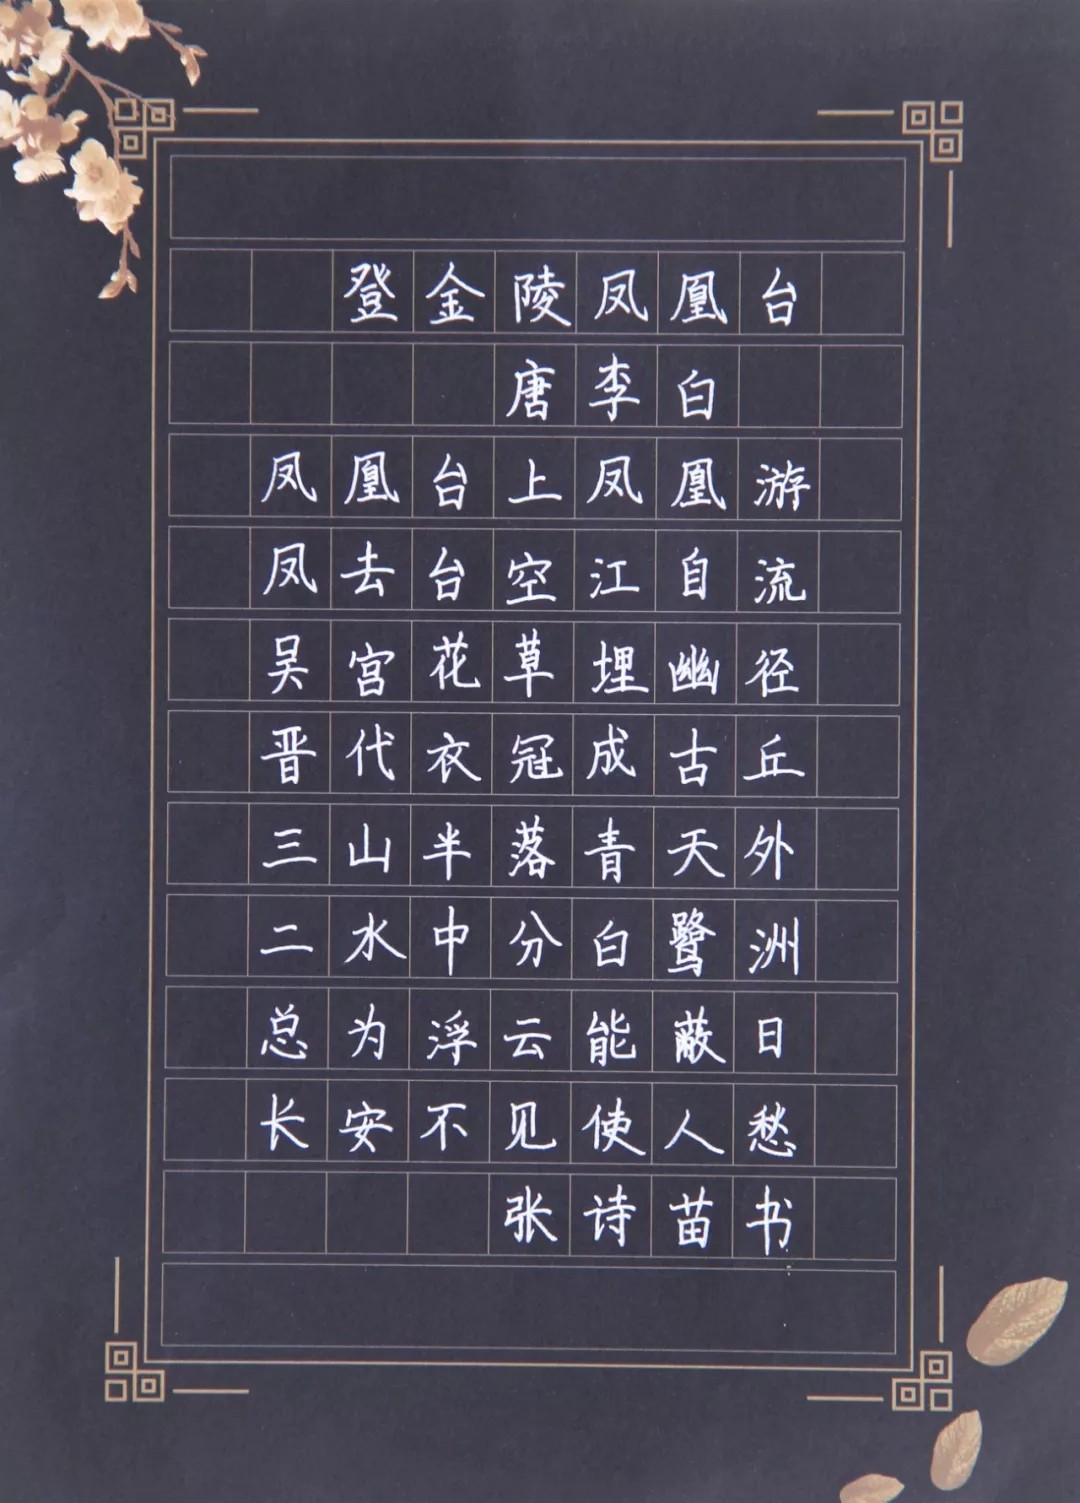 登金陵凤凰台
唐李白
凤凰台上凤凰游
凤去台空江自流
吴宫花草埋幽径
晋代衣冠成古丘
三山半落青天外
二水中分白鹭洲
总为浮云能蔽日
长安不见使人愁
张诗苗书